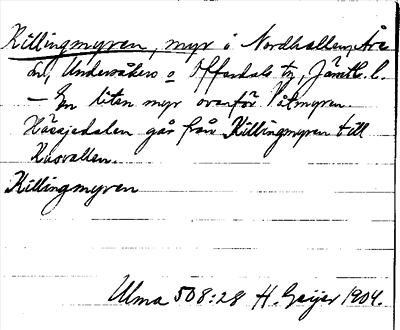 Killingmyren, myr i Nordhallen, Åre
sn, Undersåkers o Offerdals tg, Jämtl. l.
— En liten myr ovanför Vålmyren.
Hässjedalen går från Killingmyren till
Husvallen.
Killingmyren
Ulma 508:28 H. Geijer 1904.